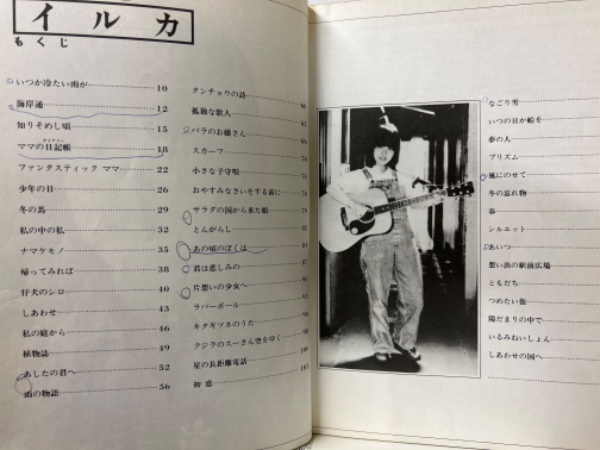 イルカ
もくじ
いつか冷たい雨が 10
海岸通 12
知りそめし頃 15
ママの日記帳 18
ファンタスティック ママ 22
少年の日 26
冬の馬 29
私の中の私 32
ナマケモノ 35
帰ってみれば 38
仔犬のシロ 40
しあわせ 43
私の庭から 46
植物誌 49
あしたの君へ 52
雨の物語 56
タンチョウの詩
孤独な歌人
バラのお嬢さん
スカーフ
小さな子守唄
おやすみなさいをする前に
サラダの国から来た娘
とんがらし
あの頃のぼくは
君は悲しみの
片想いの少女へ
ラバーボール
キタキツネのうた
クジラのスーさん空をゆく
星の長距離電話
初恋
なごり雪
いつの日か船を
夢の人
プリズム
風にのせて
冬の忘れ物
春
シルエット
あいつ
想い出の駅前広場
ともだち
つめたい
陽だまりの中で
いるみねいしょん
しあわせの国へ